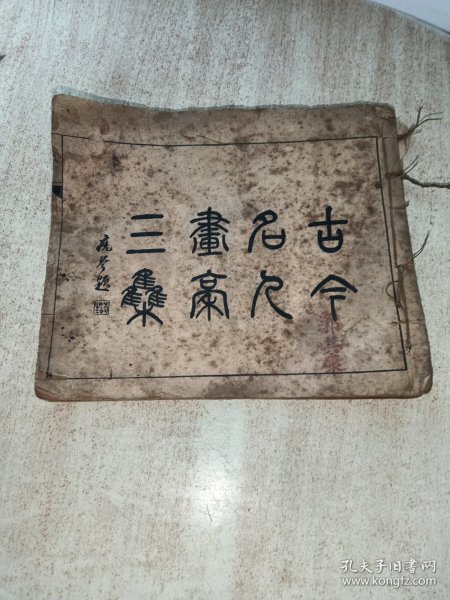 古今
名人
畫稾
三集
孔夫子旧书网
www.kongfz.com